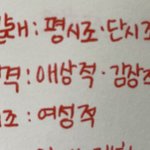 갈래: 평시조·단시조
격: 애상적·감상적
조: 여성적